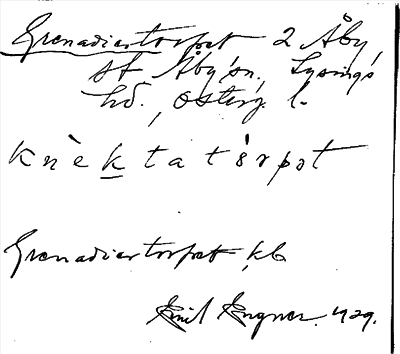 Grenadiertorpet 2 Åby,
st Åby sn, Lysings
hd., Österg. l.
knèktatòrpət
Grenadiertorpet kb
Emil Engner. 1929.